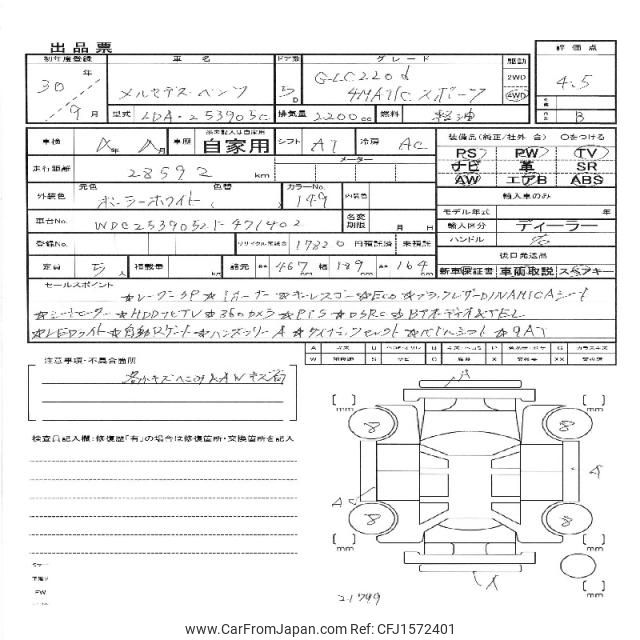 出品票
初年度登録 車名 ドア数 グレード 駆動 評価点
30 年 9 月 メルセデス・ベンツ 5 D GLC220d 4MATIC スポーツ 2WD 4WD 4.5
型式 LDA-253905C 排気量 2200 cc 燃料 軽油 B
車検 年 月 車歴 自家用 シフト AT 冷房 AC 装備品(純正/社外 含) ○をつける
走行距離 28592 km メーター PS PW TV
ナビ 革 SR
AW エアB ABS
外装色 元色 ポーラーホワイト 色替 カラーNo. 149 内装色 輸入車のみ
モデル年式 年
車台No. WDC2539052F471402 名変期限 月 日 輸入区分 ディーラー
登録No. リサイクル預託金 17820 円預託済 未預託 ハンドル 右
定員 5 人 積載量 kg 諸元 467 幅 189 164 後日発送品
新車保証書 車両取説 スペアキー
セールスポイント
★レーダーSP ★1オーナー ★キーレスゴー ★Eco ★ブラックレザーDINAMICAシート
★シートヒーター ★HDDナビTV ★360カメラ ★PTS ★DSRC ★BTオーディオ&TEL
★LEDライト ★自動Rゲート ★ハンズフリーA ★ダイナミックセレクト ★パドルシフト ★9AT
注意事項・不具合箇所
検査員記入欄:修復歴「有」の場合は修復箇所・交換箇所を記入
A
8 8
A
A
8 8
mm mm
mm mm
A
21799
www.CarFromJapan.com - CFJ1572401